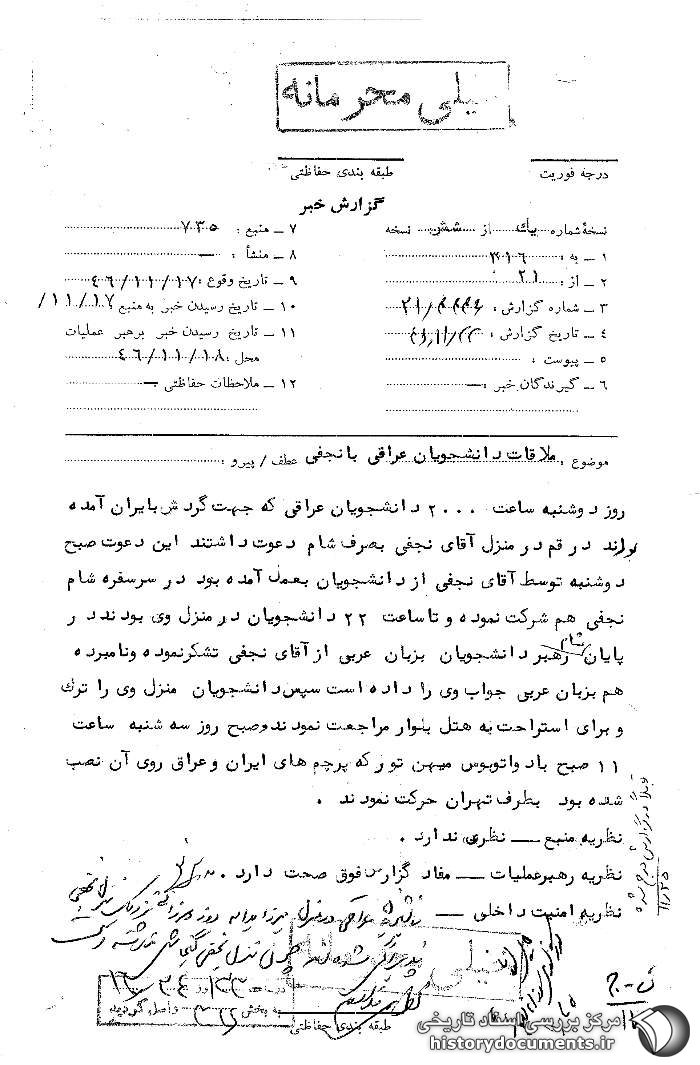 خیلی محرمانه
درجه فوریت
طبقه بندی حفاظتی
گزارش خبر
نسخهٔ شماره یک از شش نسخه
۱ ــ به : ۳۱۶
۲ ــ از : ۲۱
۳ ــ شماره گزارش :
۴ ــ تاریخ گزارش :
۵ ــ پیوست :
۶ ــ گیرندگان خبر : ــ
۷ ــ منبع : ۷۳۵
۸ ــ منشأ : ــ
۹ ــ تاریخ وقوع : ۴۶/۱۱/۱۷
۱۰ ــ تاریخ رسیدن خبر به منبع : ۱۱/۱۷/
۱۱ ــ تاریخ رسیدن خبر برهبر عملیات
محل : ۴۶/۱۱/۱۸
۱۲ ــ ملاحظات حفاظتی ــ
موضوع : ملاقات دانشجویان عراقی با نجفی عطف / پیرو :
روز دوشنبه ساعت ۲۰۰۰ دانشجویان عراقی که جهت گردش بایران آمده
بودند در قم در منزل آقای نجفی بصرف شام دعوت داشتند این دعوت صبح
دوشنبه توسط آقای نجفی از دانشجویان بعمل آمده بود در سرسفره شام
نجفی هم شرکت نموده و تا ساعت ۲۲ دانشجویان در منزل وی بودند در
پایان شام رهبر دانشجویان بزبان عربی از آقای نجفی تشکر نموده و نامبرده
هم بزبان عربی جواب وی را داده است سپس دانشجویان منزل وی را ترك
و برای استراحت به هتل بلوار مراجعت نمودند و صبح روز سه شنبه ساعت
۱۱ صبح با دو اتوبوس میهن تور که پرچم های ایران و عراق روی آن نصب
شده بود بطرف تهران حرکت نمودند .
نظریه منبع ــ نظری ندارد .
نظریه رهبر عملیات ــ مفاد گزارش فوق صحت دارد .
نظریه امنیت داخلی ــ
قبلاً در گزارش درج شده
۱۱/۲۵
خیلی محرمانه
به بخش ۳۱۶ واصل گردید
طبقه بندی حفاظتی
مرکز بررسی اسناد تاریخی
historydocuments.ir